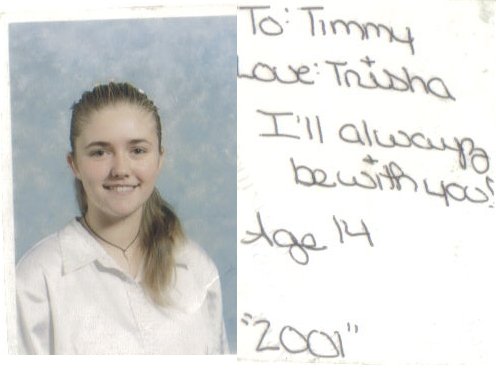 To: Timmy
Love: Trisha
I'll always
be with you!
Age 14
"2001"